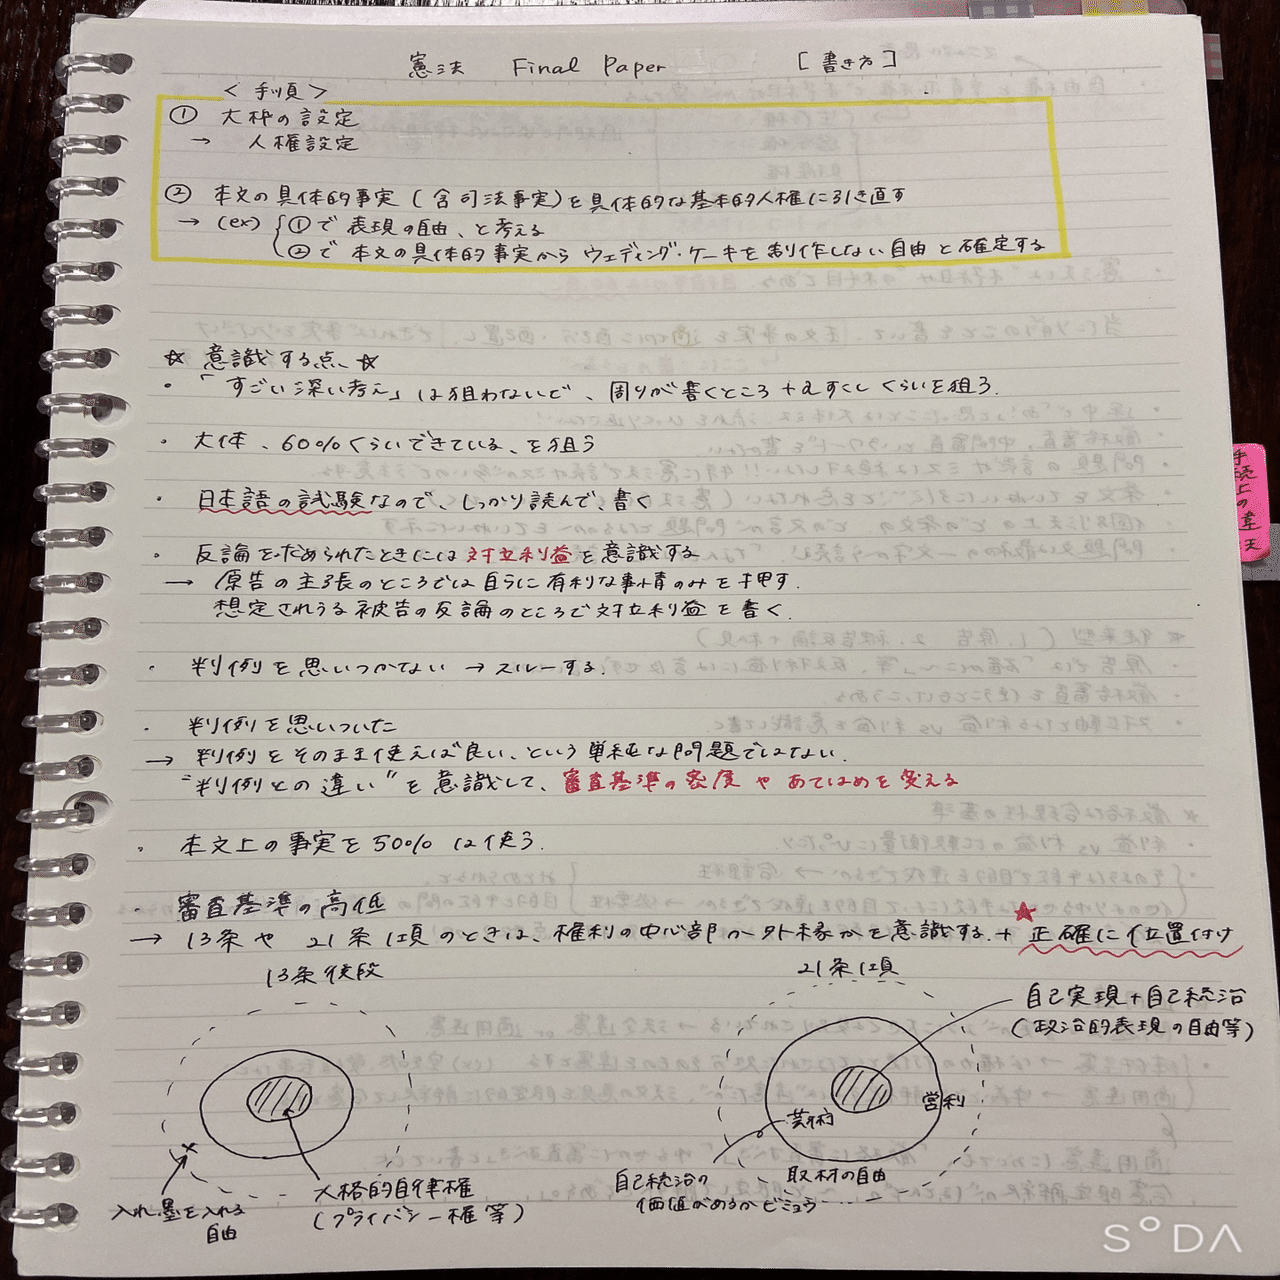 憲法 Final Paper [書き方]
<手順>
① 大枠の設定
→ 人権設定
② 本文の具体的事実(含司法事実)を具体的な基本的人権に引き直す
→ (ex) ①で表現の自由、と考える
②で本文の具体的事実からウェディング・ケーキを制作しない自由と確定する
☆ 意識する点、☆
・「すごい深い考え」は狙わないで、周りが書くところ+αすくしくらいを狙う.
・大体、60%くらいできている、を狙う
・日本語の試験なので、しっかり読んで、書く
・反論をだめられたときには対立利益を意識する
→ 原告の主張のところでは自らに有利な事情のみを押す.
想定されうる被告の反論のところで対立利益を書く.
・判例を思いつかない → スルーする.
・判例を思いついた
→ 判例をそのまま使えば良い、という単純な問題ではない.
"判例との違い"を意識して、審査基準の密度やあてはめを変える
・本文上の事実を50%は使う.
・審査基準の高低
→ 13条や21条1項のときは、権利の中心部か外縁かを意識する.+ ★正確に位置付け
13条後段
21条1項
自己実現+自己統治
(政治的表現の自由等)
営利
芸術
入れ墨を入れる
自由
人格的自律権
(プライバシー権等)
自己統治の
価値があるかビミョウ
取材の自由
手続上の違天
SODA